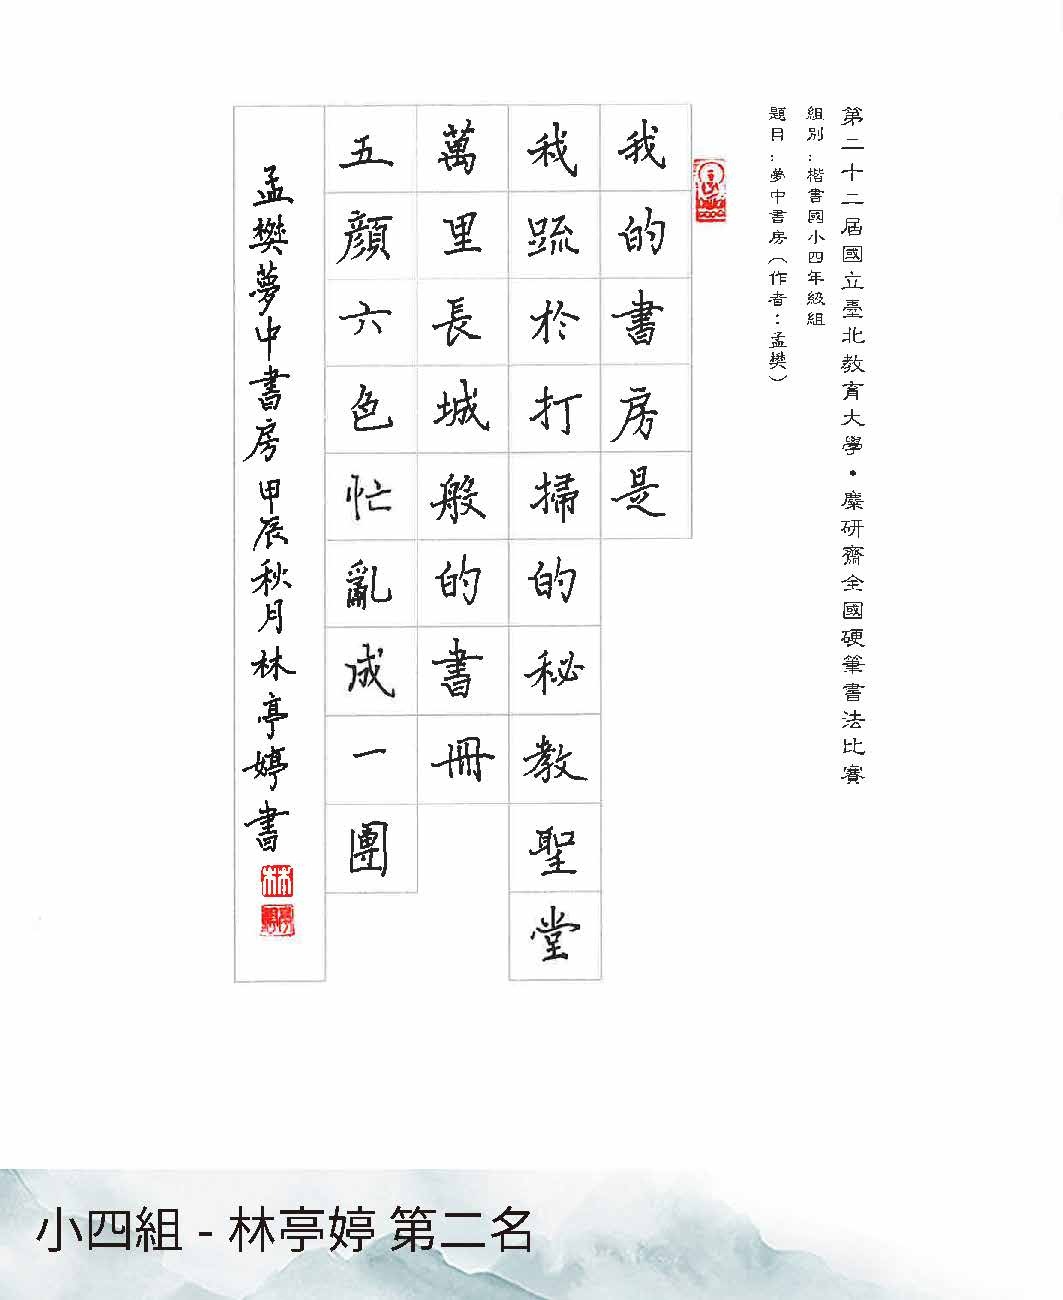 第二十二屆國立臺北教育大學・麋研齋全國硬筆書法比賽
組別：楷書國小四年級組
題目：夢中書房（作者：孟樊）
我的書房是
我疏於打掃的秘教聖堂
萬里長城般的書冊
五顏六色忙亂成一團
孟樊夢中書房甲辰秋月林亭婷書
林
亭婷
小四組 - 林亭婷 第二名